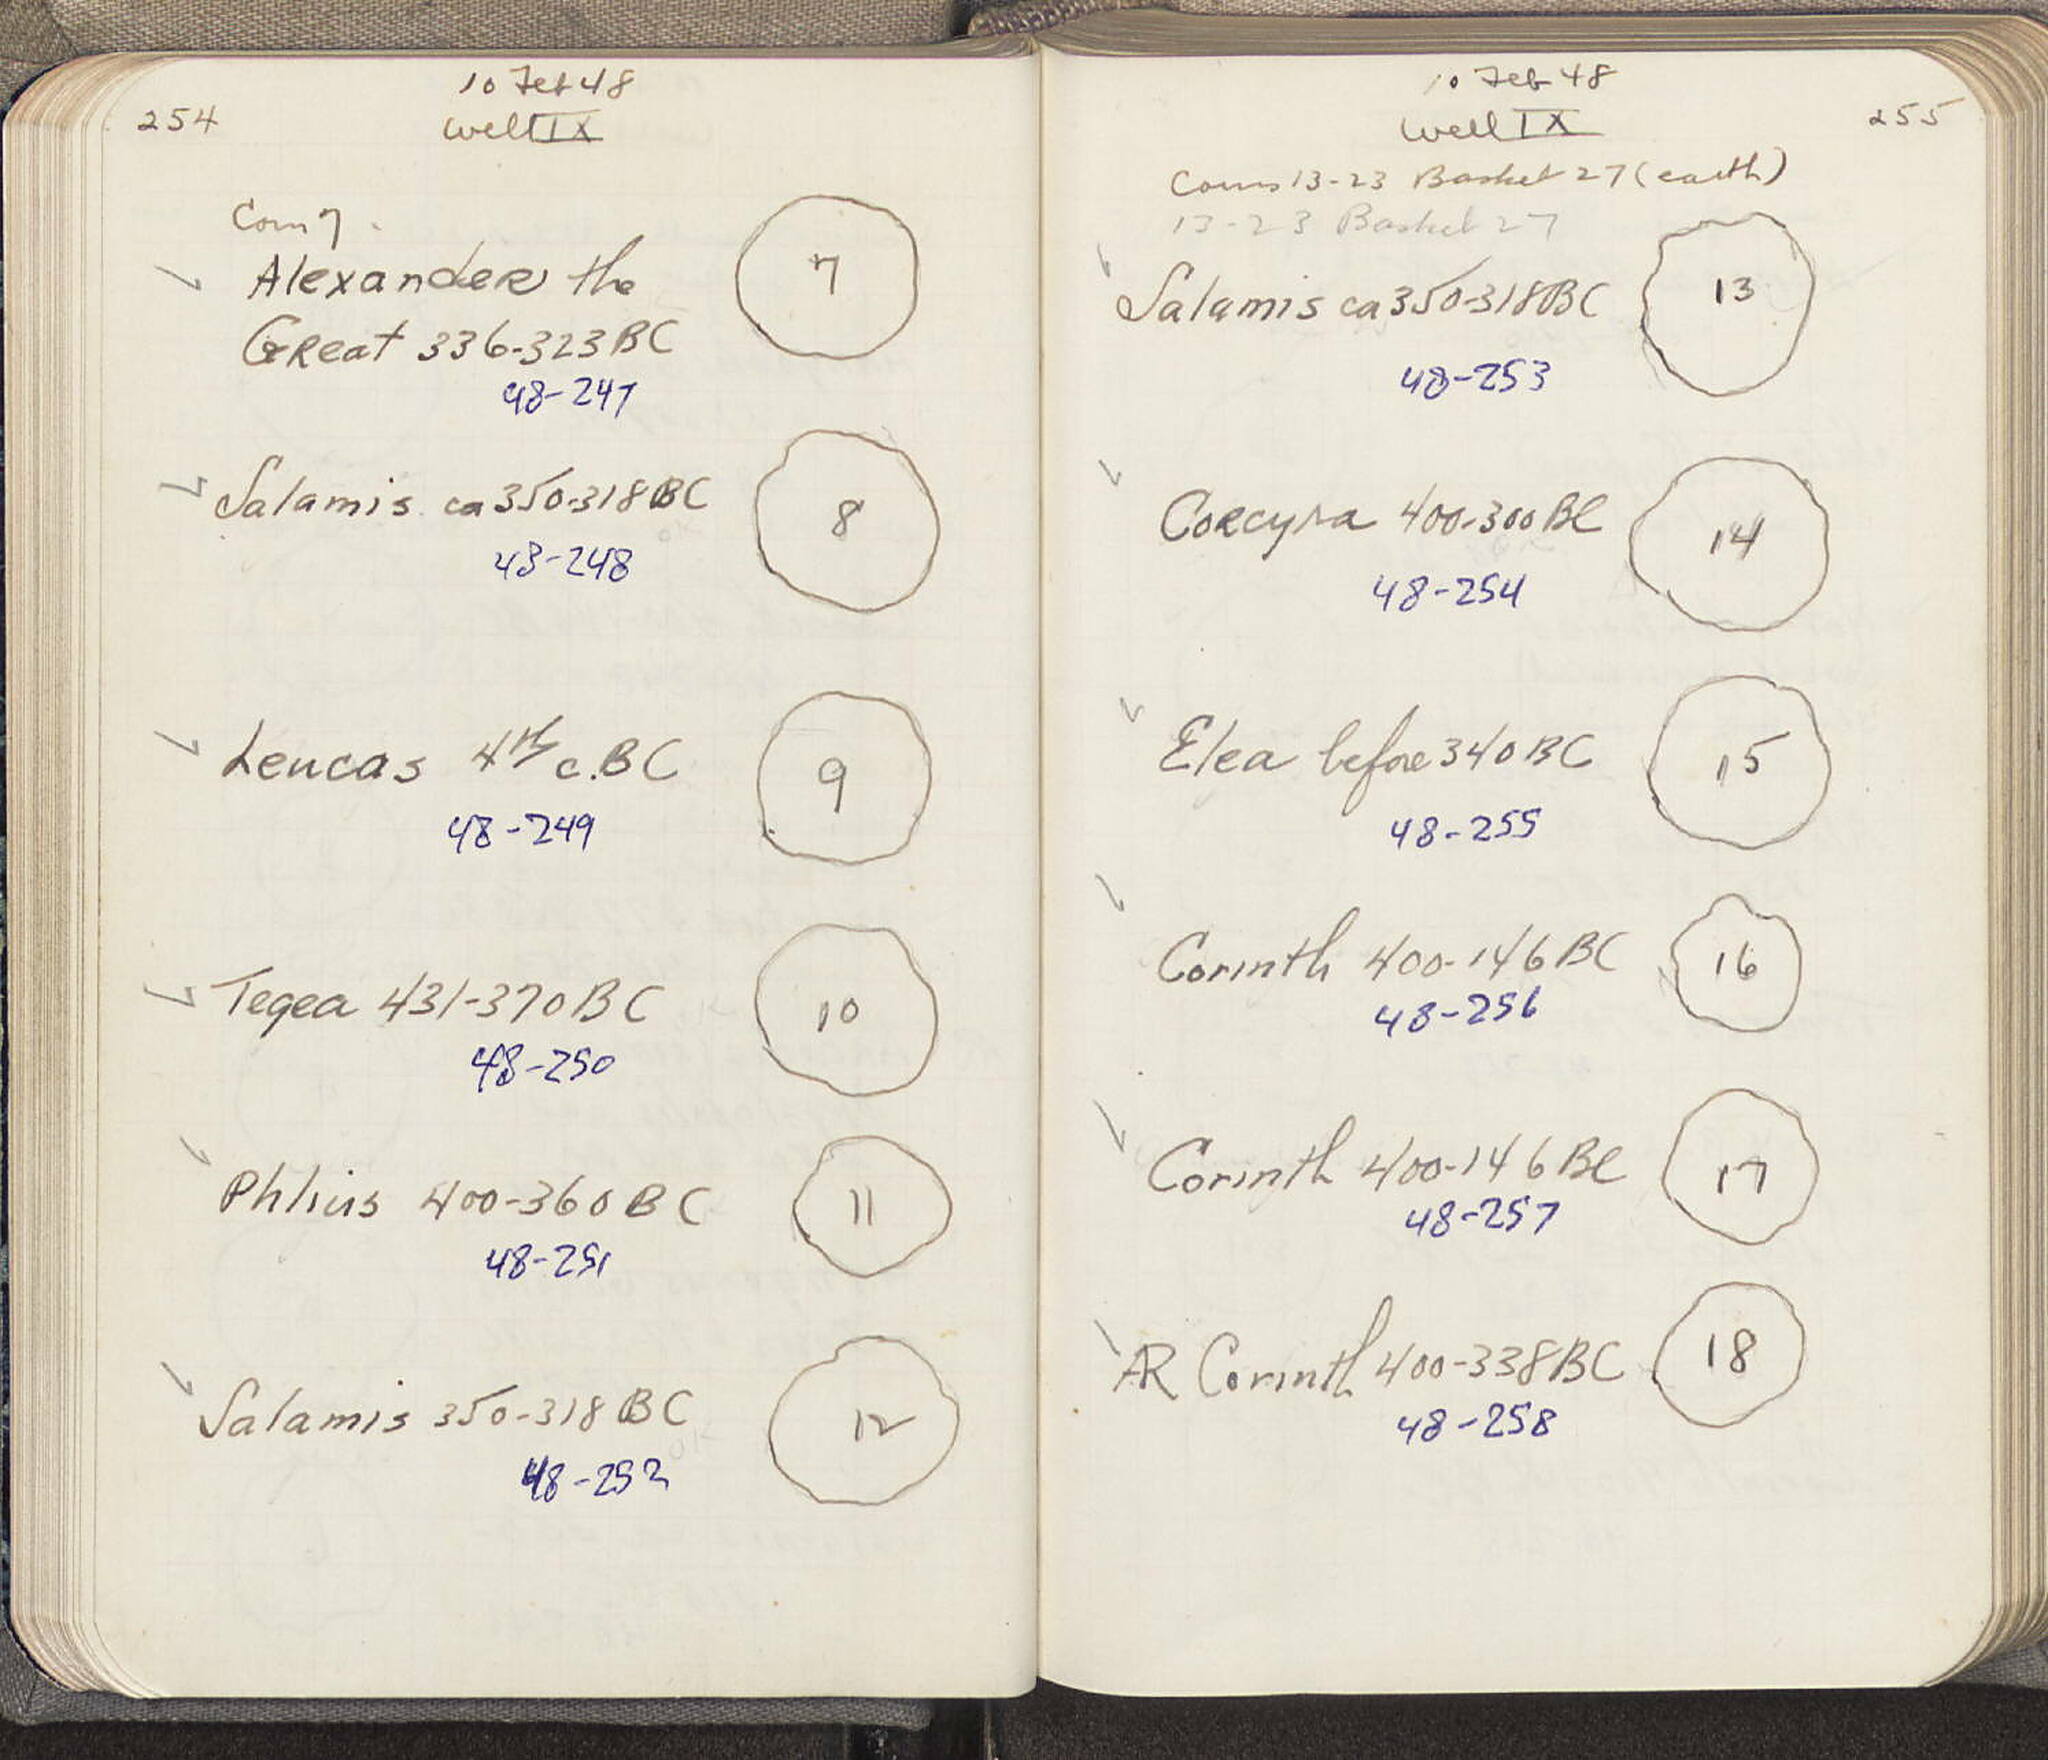 10 Feb 48
254
Well IX
Coin 7.
Alexander the
Great 336-323 BC
7
48-247
Salamis ca 350-318 BC
8
48-248
Leucas 4th c. BC
9
48-249
Tegea 431-370 BC
10
48-250
Phlius 400-360 BC
11
48-251
Salamis 350-318 BC
12
48-252
10 Feb 48
255
Well IX
Coins 13-23 Basket 27 (earth)
13-23 Basket 27
Salamis ca 350-318 BC
13
48-253
Corcyra 400-300 BC
14
48-254
Elea before 340 BC
15
48-255
Corinth 400-146 BC
16
48-256
Corinth 400-146 BC
17
48-257
AR Corinth 400-338 BC
18
48-258